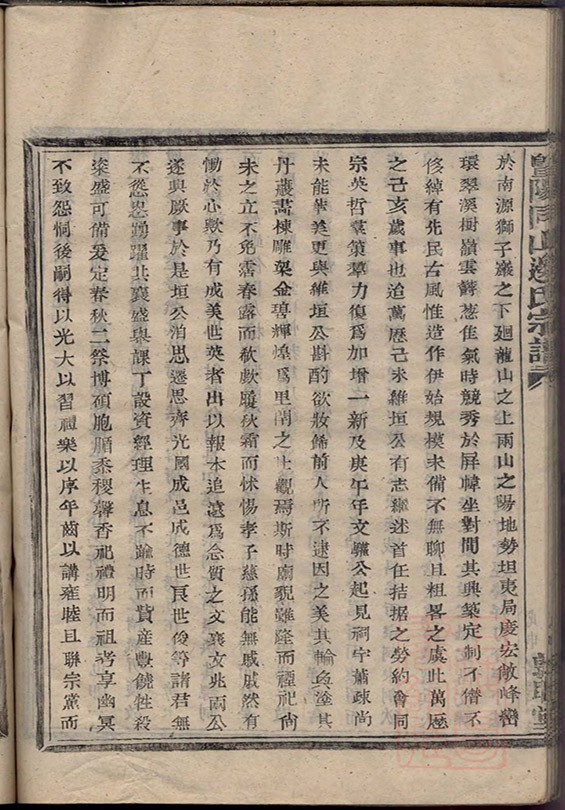 暨陽同山邊氏宗譜
於南源獅子巖之下廻龍山之上兩山之陽地勢坦夷局慶宏敞峰巒
環翠溪樹嶺雲欝葱佳氣時競秀於屏幛坐對間其興築定制不僭不
侈綽有先民古風惟造作伊始規模未備不無聊且粗畧之虞此萬歷
之己亥歲事也迨萬歷己未維垣公有志繼述首任拮据之勞約會同
宗英哲羣策羣力復爲加增一新及庚午年文驩公起見祠宇蕭疎尚
未能華美更與維垣公斟酌欲妝餙前人所不逮因之美其輪奐塗其
丹雘畵棟雕梁金碧輝煌爲里閈之壯觀焉斯時廟貌雖隆而禋祀尙
未之立不免霑春露而欷歔履秋霜而怵惕孝子慈孫能無戚戚然有
慟於心歟乃有成美世英者出以報本追遠爲念質之文襄文兆兩公
遂興厥事於是垣公洎思遷思齊光國成邑成德世良世俊等諸君無
不慫恿踴躍共襄盛舉課丁設資經理生息不踰時而貲產豐饒牲殺
粢盛可備爰定春秋二祭博碩肥腯黍稷馨香祀禮明而祖考享幽冥
不致怨恫後嗣得以光大以習禮樂以序年齒以講雍睦且聯宗黨而